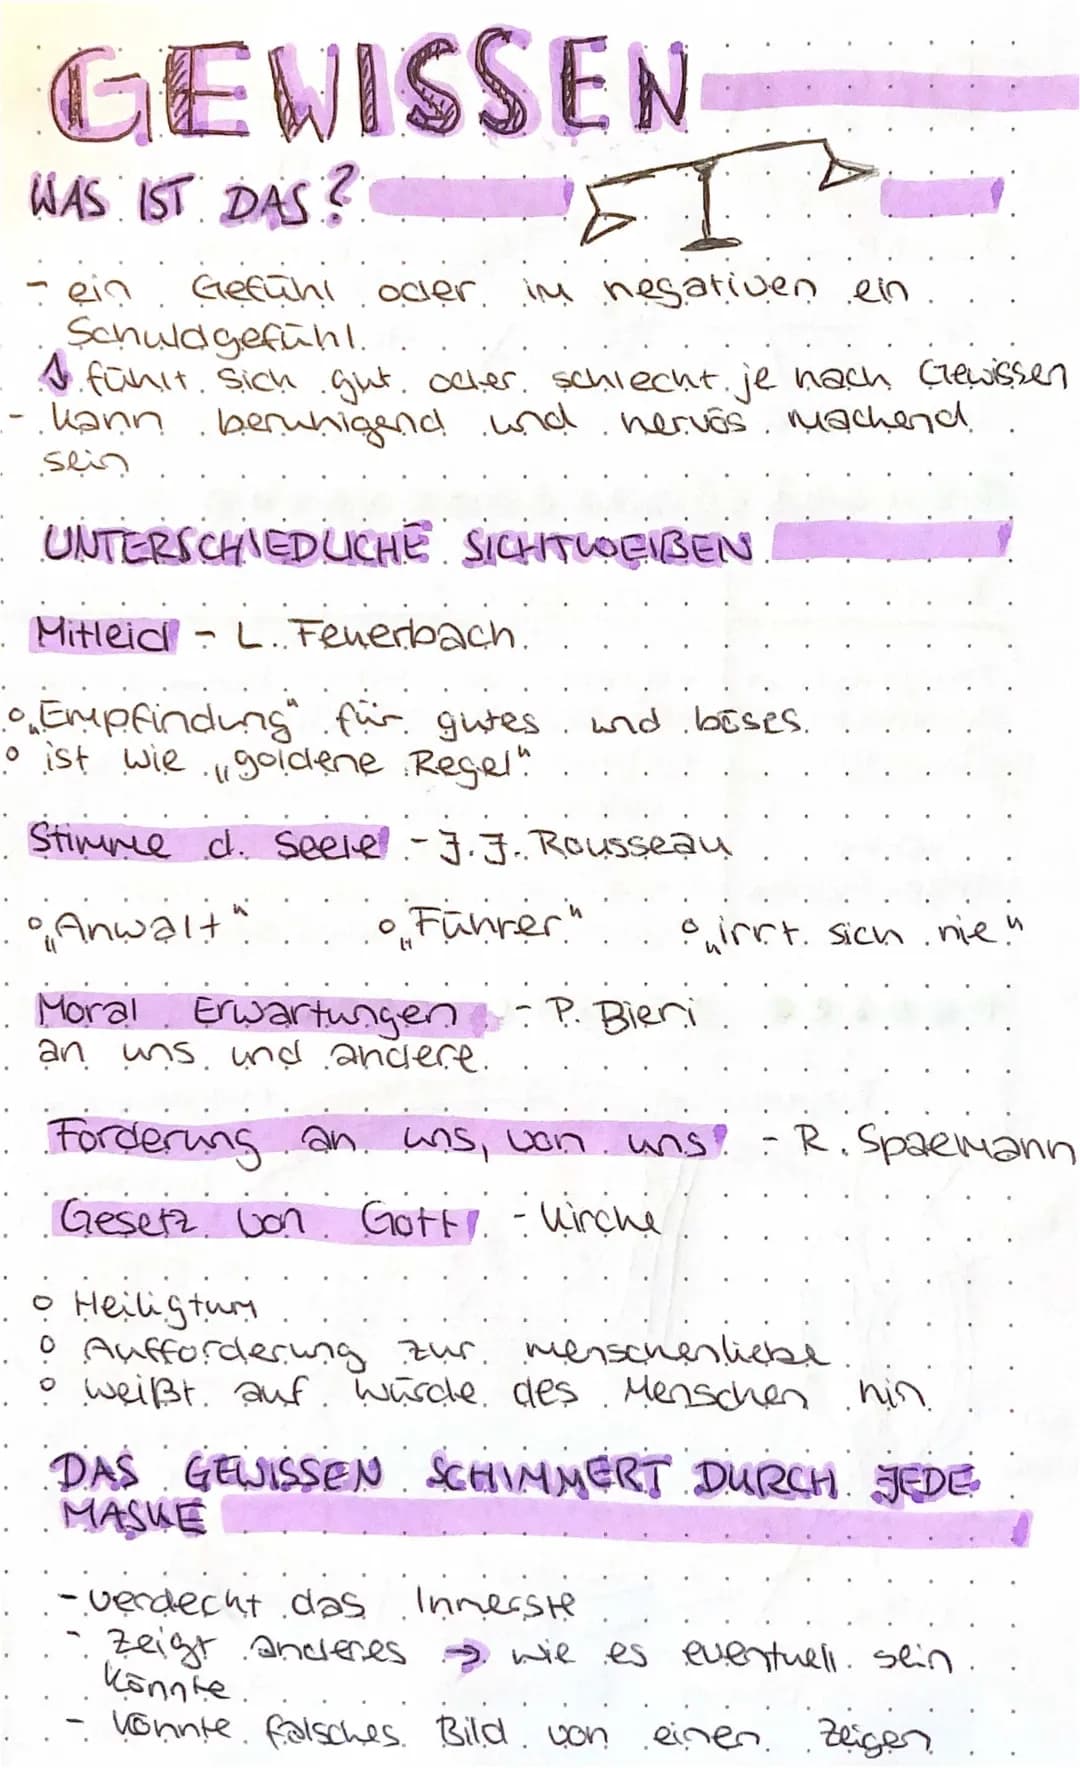 GEWISSEN
WAS IST DAS?
- ein Gefühl oder im negativen ein
Schuldgefühl
↳ fühlt sich gut oder schlecht je nach Gewissen
- kann beruhigend und nervös machend
sein
UNTERSCHIEDLICHE SICHTWEIßEN
Mitleid - L. Feuerbach
° „Empfindung" für gutes und böses
° ist wie „goldene Regel"
Stimme d. Seele - J. J. Rousseau
° „Anwalt" ° „Führer" ° „irrt sich nie"
Moral Erwartungen - P. Bieri
an uns und andere
Forderung an uns, von uns - R. Spaemann
Gesetz von Gott - Kirche
° Heiligtum
° Aufforderung zur menschenliebe
° weißt auf würde des Menschen hin
DAS GEWISSEN SCHIMMERT DURCH JEDE
MASKE
- verdeckt das Innerste
- zeigt anderes → wie es eventuell sein
könnte
- könnte falsches Bild von einen zeigen